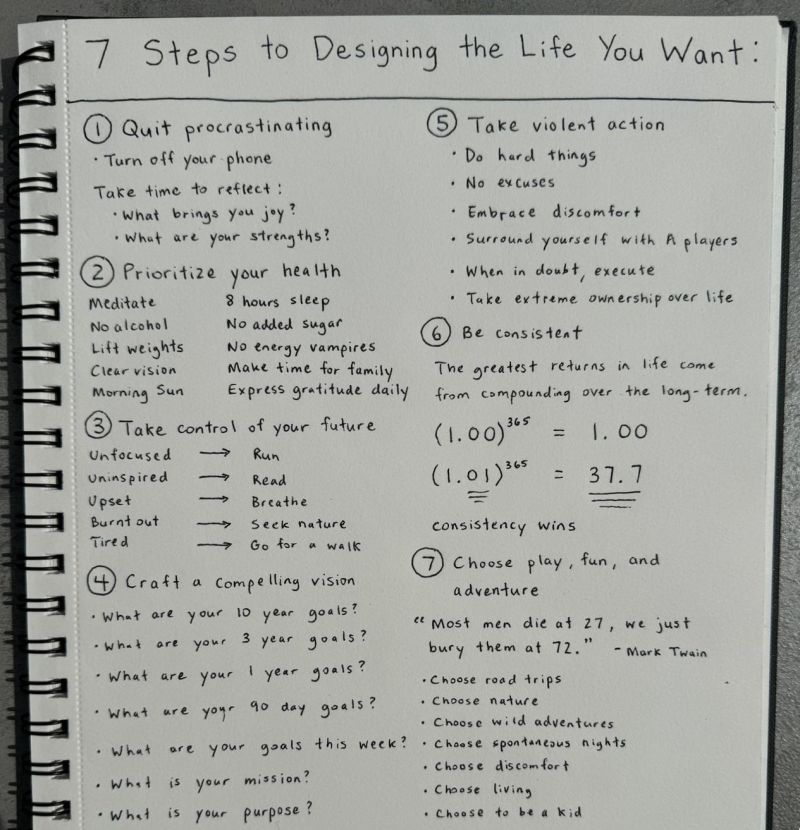 7 Steps to Designing the Life You Want:
① Quit procrastinating
• Turn off your phone
Take time to reflect:
• What brings you joy?
• What are your strengths?
② Prioritize your health
Meditate 8 hours sleep
No alcohol No added sugar
Lift weights No energy vampires
Clear vision Make time for family
Morning Sun Express gratitude daily
③ Take control of your future
Unfocused → Run
Uninspired → Read
Upset → Breathe
Burnt out → Seek nature
Tired → Go for a walk
④ Craft a compelling vision
• What are your 10 year goals?
• What are your 3 year goals?
• What are your 1 year goals?
• What are your 90 day goals?
• What are your goals this week?
• What is your mission?
• What is your purpose?
⑤ Take violent action
• Do hard things
• No excuses
• Embrace discomfort
• Surround yourself with A players
• When in doubt, execute
• Take extreme ownership over life
⑥ Be consistent
The greatest returns in life come
from compounding over the long-term.
(1.00)³⁶⁵ = 1.00
(1.01)³⁶⁵ = 37.7
consistency wins
⑦ Choose play, fun, and
adventure
“Most men die at 27, we just
bury them at 72.” - Mark Twain
• Choose road trips
• Choose nature
• Choose wild adventures
• Choose spontaneous nights
• Choose discomfort
• Choose living
• Choose to be a kid